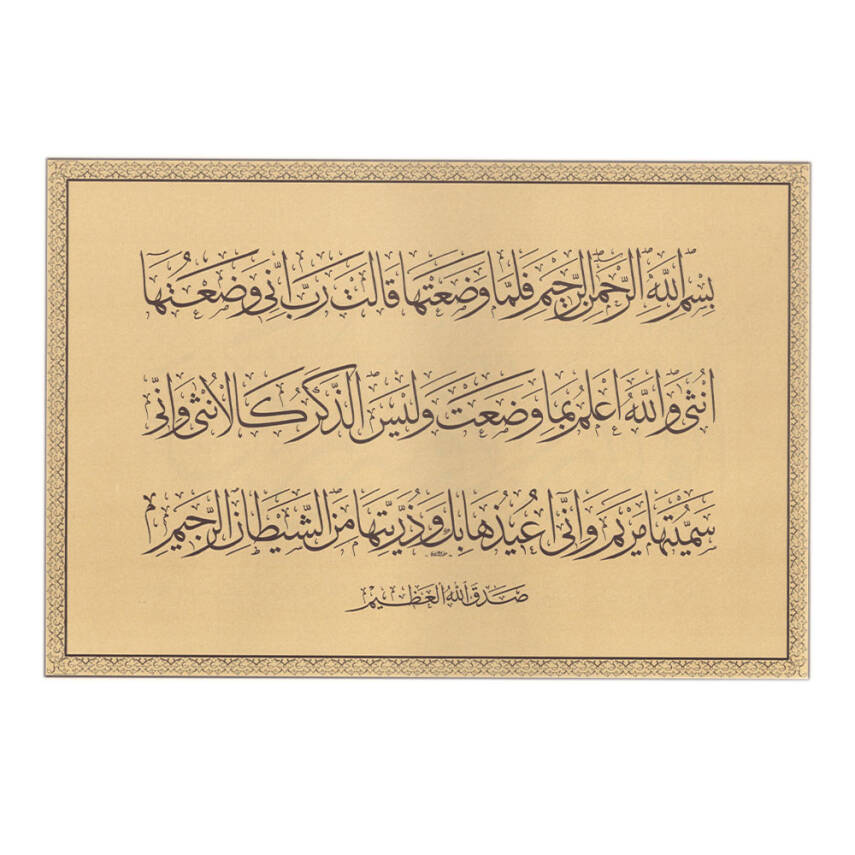 بِسْمِ اللّٰهِ الرَّحْمٰنِ الرَّحِيْمِ فَلَمَّا وَضَعَتْهَا قَالَتْ رَبِّ اِنِّى وَضَعْتُهَآ
اُنْثٰى وَاللّٰهُ اَعْلَمُ بِمَا وَضَعَتْ وَلَيْسَ الذَّكَرُ كَالْاُنْثٰى وَاِنِّى
سَمَّيْتُهَا مَرْيَمَ وَاِنِّىٓ اُعِيْذُهَا بِكَ وَذُرِّيَّتَهَا مِنَ الشَّيْطَانِ الرَّجِيْمِ
صَدَقَ اللّٰهُ الْعَظِيْمُ